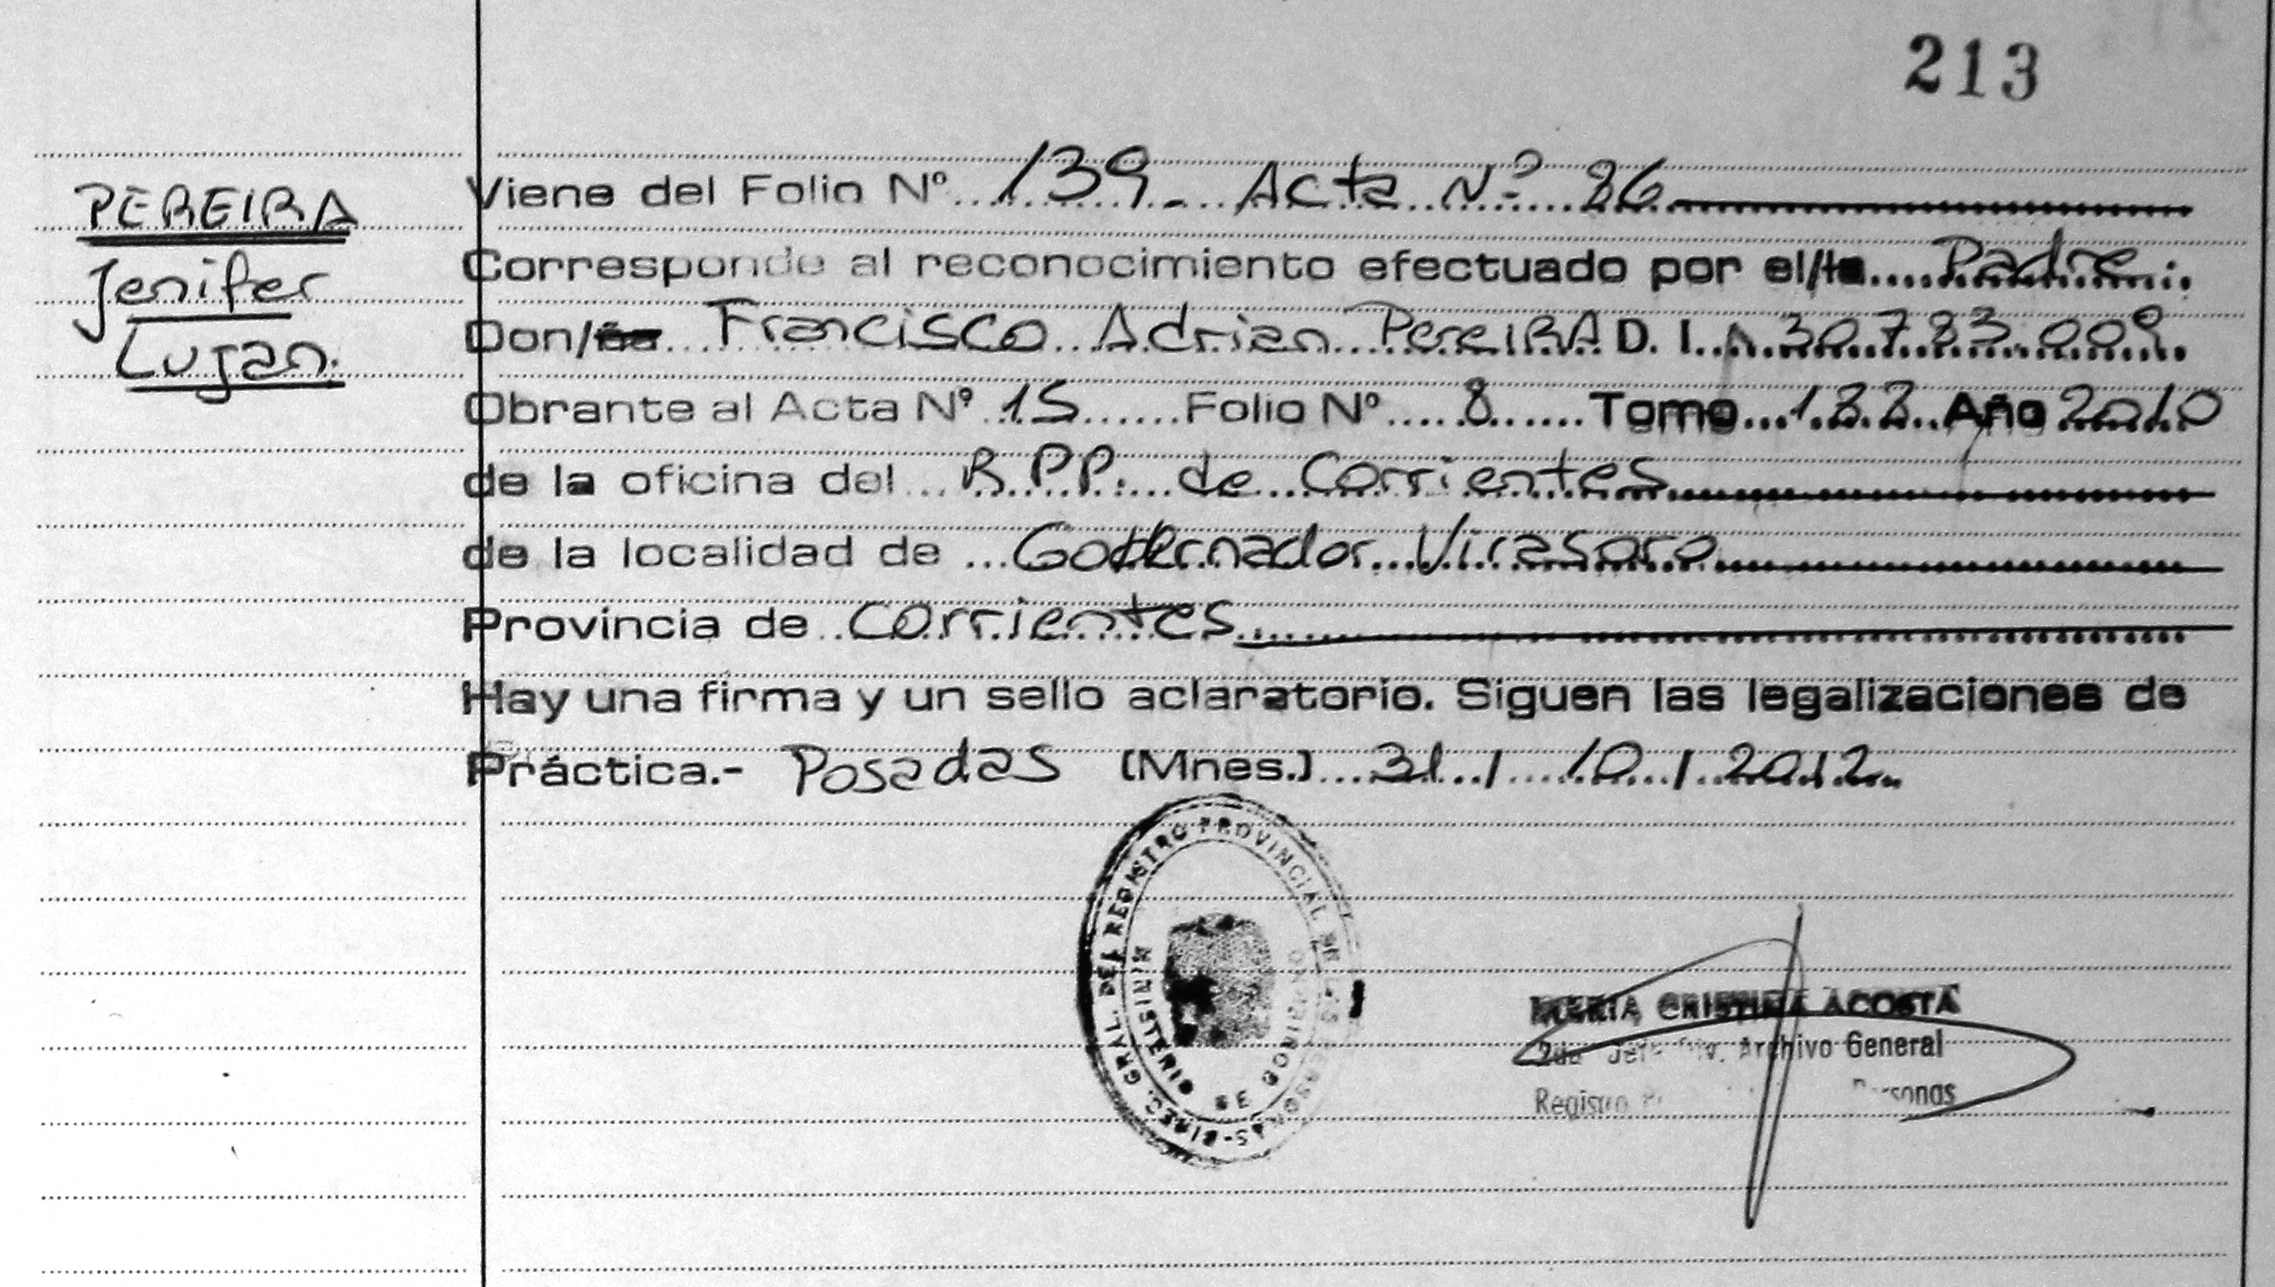 213
PEREIRA
Jenifer
Lujan.
Viene del Folio Nº 139 - Acta Nº 86
Corresponde al reconocimiento efectuado por el/la Padre
Don/ña Francisco Adrian PereiRA D. I. 30.783.009
Obrante al Acta Nº 15 Folio Nº 8 Tomo 188 Año 2010
de la oficina del R.P.P. de Corrientes
de la localidad de Gobernador Virasoro
Provincia de Corrientes
Hay una firma y un sello aclaratorio. Siguen las legalizaciones de
Práctica.- Posadas (Mnes.) 31 / 10 / 2012
DIREC. GRAL. DEL REGISTRO PROVINCIAL DE LAS PERSONAS
MINISTERIO DE GOBIERNO
MARIA CRISTINA ACOSTA
2da Jefe Div. Archivo General
Registro Personas